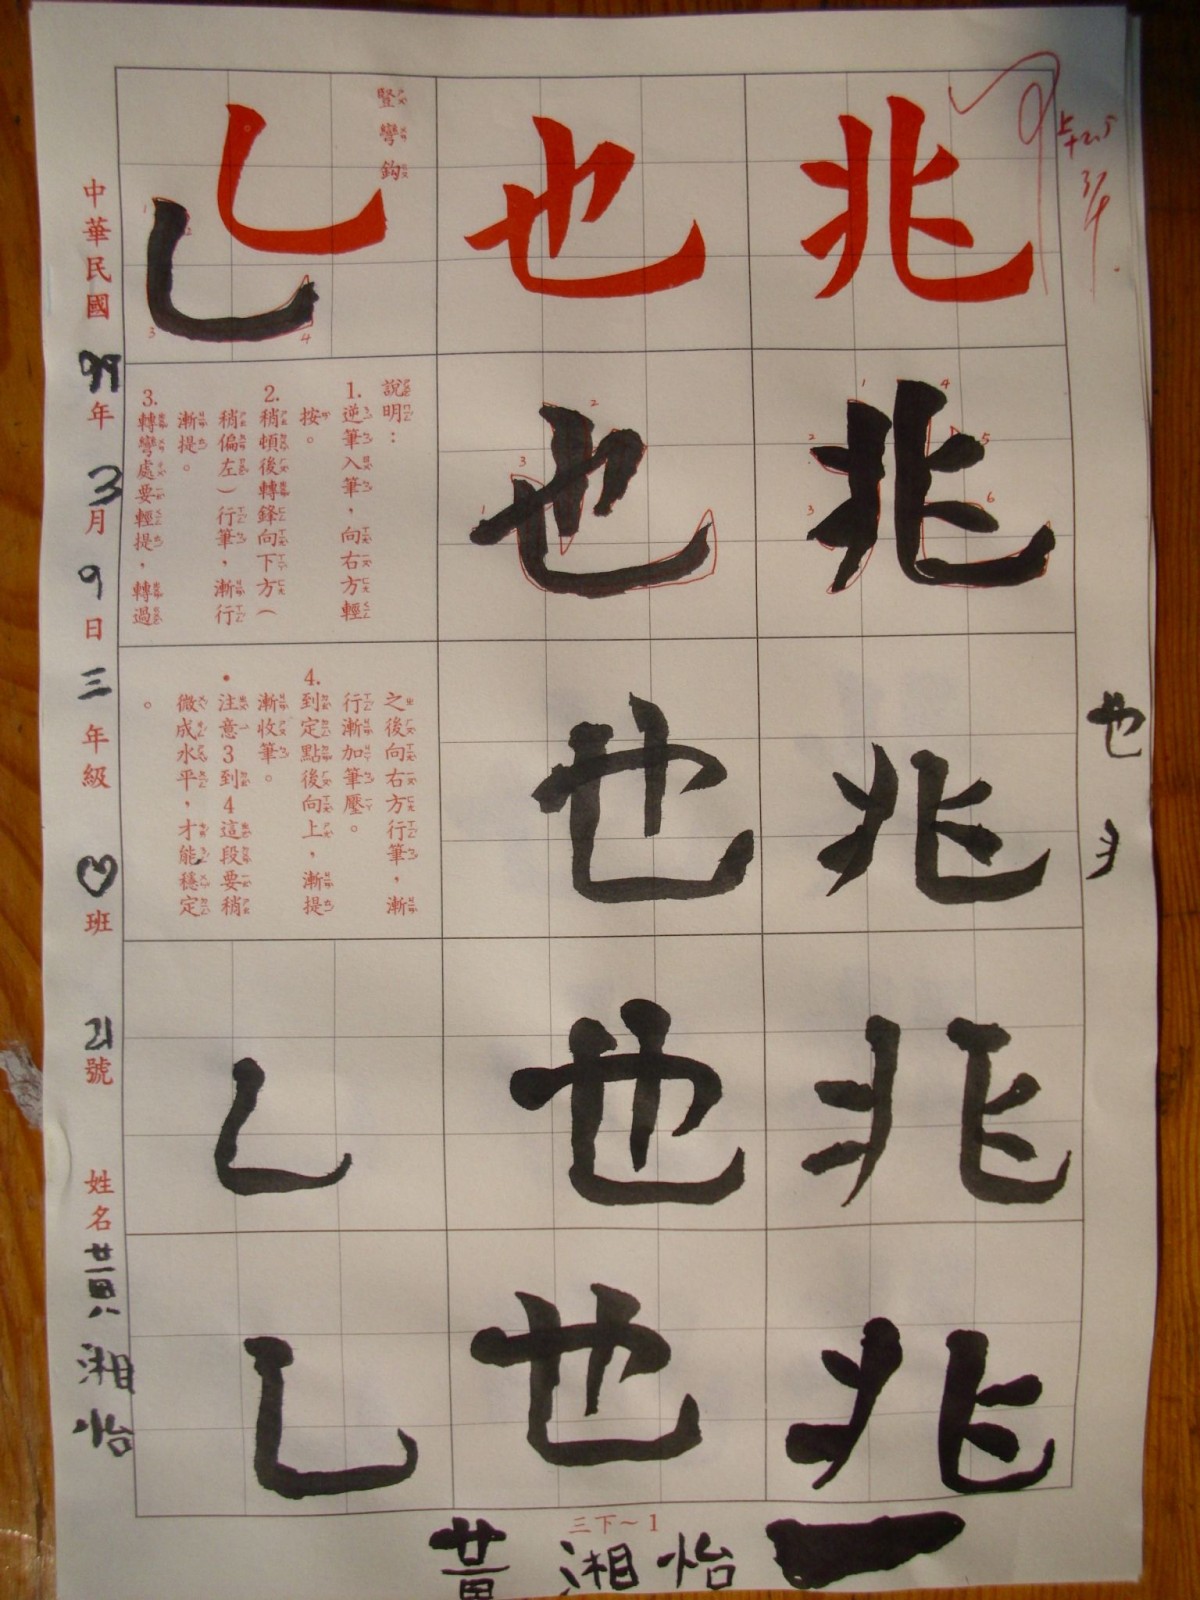 兆
兆
兆
兆
兆
也
也
也
也
也
豎彎鈎
說明：
1.逆筆入筆，向右方輕
按。
2.稍頓後轉鋒向下方（
稍偏左）行筆，漸行
漸提。
3.轉彎處要輕提，轉過
之後向右方行筆，漸
行漸加筆壓。
4.到定點後向上，漸提
漸收筆。
•注意3到4這段要稍
微成水平，才能穩定
。
中華民國99年3月9日三年級♡班21號姓名黃湘怡
也
三下～1
黃湘怡